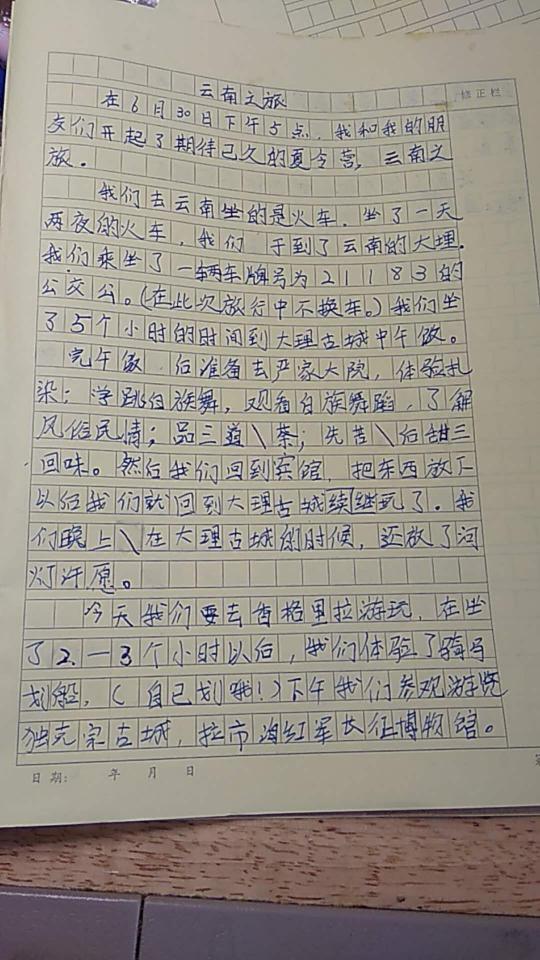 云南之旅
修正栏
在6月30日下午5点，我和我的朋
友们开起了期待己久的夏令营，云南之
旅．
我们去云南坐的是火车．坐了一天
两夜的火车，我们于到了云南的大理．
我们乘坐了一辆车牌号为21183的
公交公。（在此次旅行中不换车。）我们坐
了5个小时的时间到大理古城中午饭。
完午饭后准备去严家大院，体验扎
染；学跳白族舞，观看白族舞蹈，了解
风俗民情；品三道\茶；先苦\后甜三
回味。然后我们回到宾馆，把东西放下
以后我们就回到大理古城续继玩了．我
们晚上\在大理古城的时候，还放了河
灯许愿。
今天我们要去香格里拉游玩，在坐
了2.—3个小时以后，我们体验了骑马
划船，（自己划哦！）下午我们参观游览
独克宗古城，拉市海红军长征博物馆。
日期： 年 月 日